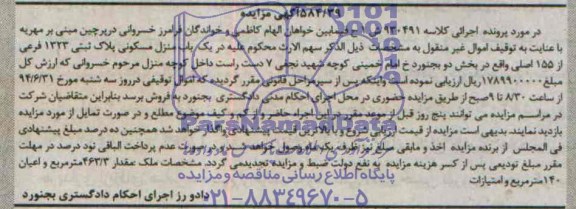 ۵۸۴۶/۳۹ آگهی مزایده
در مورد پرونده اجرائی کلاسه ۹۳۰۴۹۱ فی مابین خواهان الهام کاظمی و خواندگان فرامرز خسروانی درپرچین مبنی بر مهریه
با عنایت به توقیف اموال غیر منقول به مشخصات ذیل الذکر سهم الارث محکوم علیه در یک باب منزل مسکونی پلاک ثبتی ۱۳۲۳ فرعی
از ۱۵۵ اصلی واقع در بخش دو بجنورد خ امام خمینی کوچه شهید نجفی ۷ دست راست داخل کوچه منزل مرحوم خسروانی که ارزش کل
۱۷۸۹۹۰۰۰۰۰ ریال ارزیابی نموده است و اینکه پس از سیر مراحل قانونی مقرر گردیده که اموال توقیفی در روز سه شنبه مورخ ۹۴/۶/۳۱
از ساعت ۸/۳۰ تا ۹ صبح از طریق مزایده حضوری در محل اجرای احکام مدنی دادگستری بجنورد به فروش برسد بنابراین متقاضیان شرکت
در مراسم مزایده می توانند پنج روز قبل از موعد مقرر در این اجراء حاضر و از کم و کیف موضوع مطلع و در صورت تمایل از مورد مزایده
بازدید نمایند. بدیهی است مزایده از قیمت پیشنهادی واگذار خواهد شد همچنین ده درصد مبلغ پیشنهادی
فی المجلس از برنده مزایده اخذ و مابقی مبلغ نیز ظرف یکماه وصول خواهد شد و در صورت عدم پرداخت الباقی نود درصد در مهلت
مقرر مبلغ تودیعی پس از کسر هزینه مزایده به نفع دولت ضبط و مزایده تجدید می گردد. مشخصات ملک :مقدار ۴۶۳/۳ مترمربع و اعیان
۱۴۰ مترمربع و امتیازات
دادو رز اجرای احکام دادگستری بجنورد
ParsNamadData
پایگاه اطلاع رسانی مناقصه و مزایده
۰۲۱-۸۸۳۴۹۶۷۰-۵